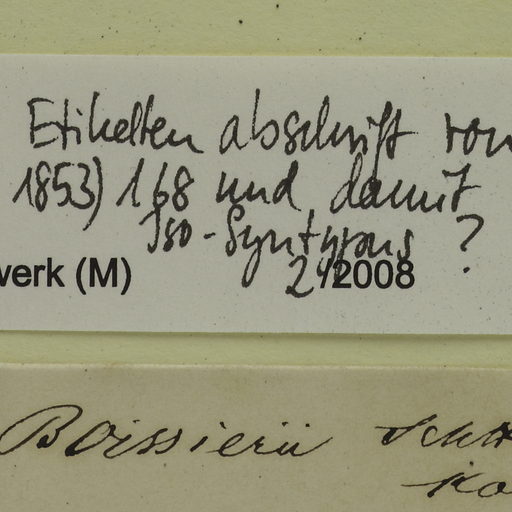 Etikettenabschrift von
1853) 168 und damit
Iso-Syntypus ?
werk (M) 2/2008
Boissierii Schott
Ko